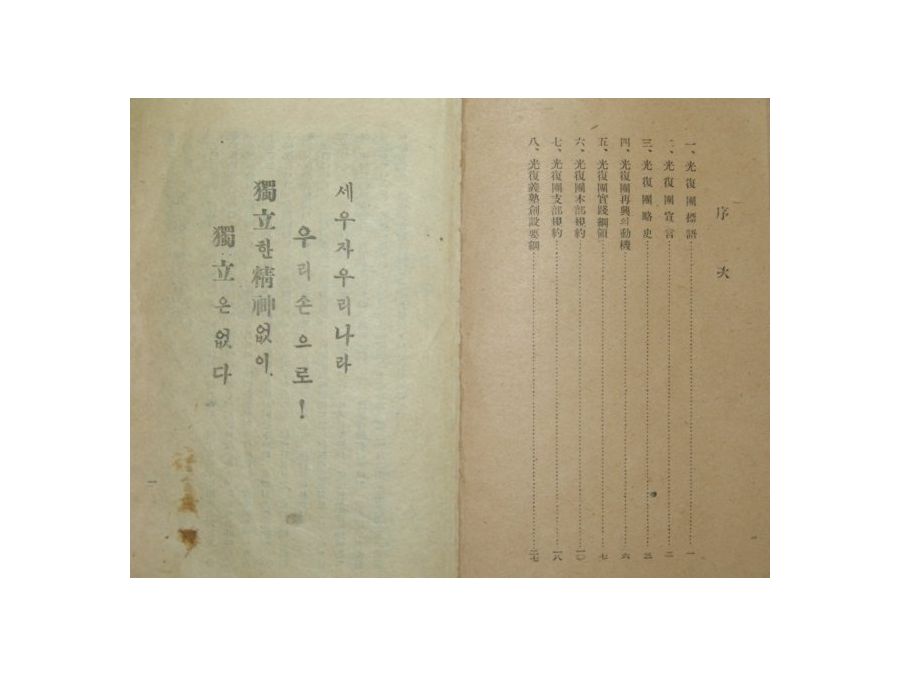 序 次
一、光復團標語 一
二、光復團宣言 二
三、光復團略史 三
四、光復團再興의動機 六
五、光復團實踐綱領 七
六、光復團本部規約 一〇
七、光復團支部規約 一八
八、光復義塾創設要綱 二七
세우자우리나라
우리손으로!
獨立한精神없이
獨立은없다
一